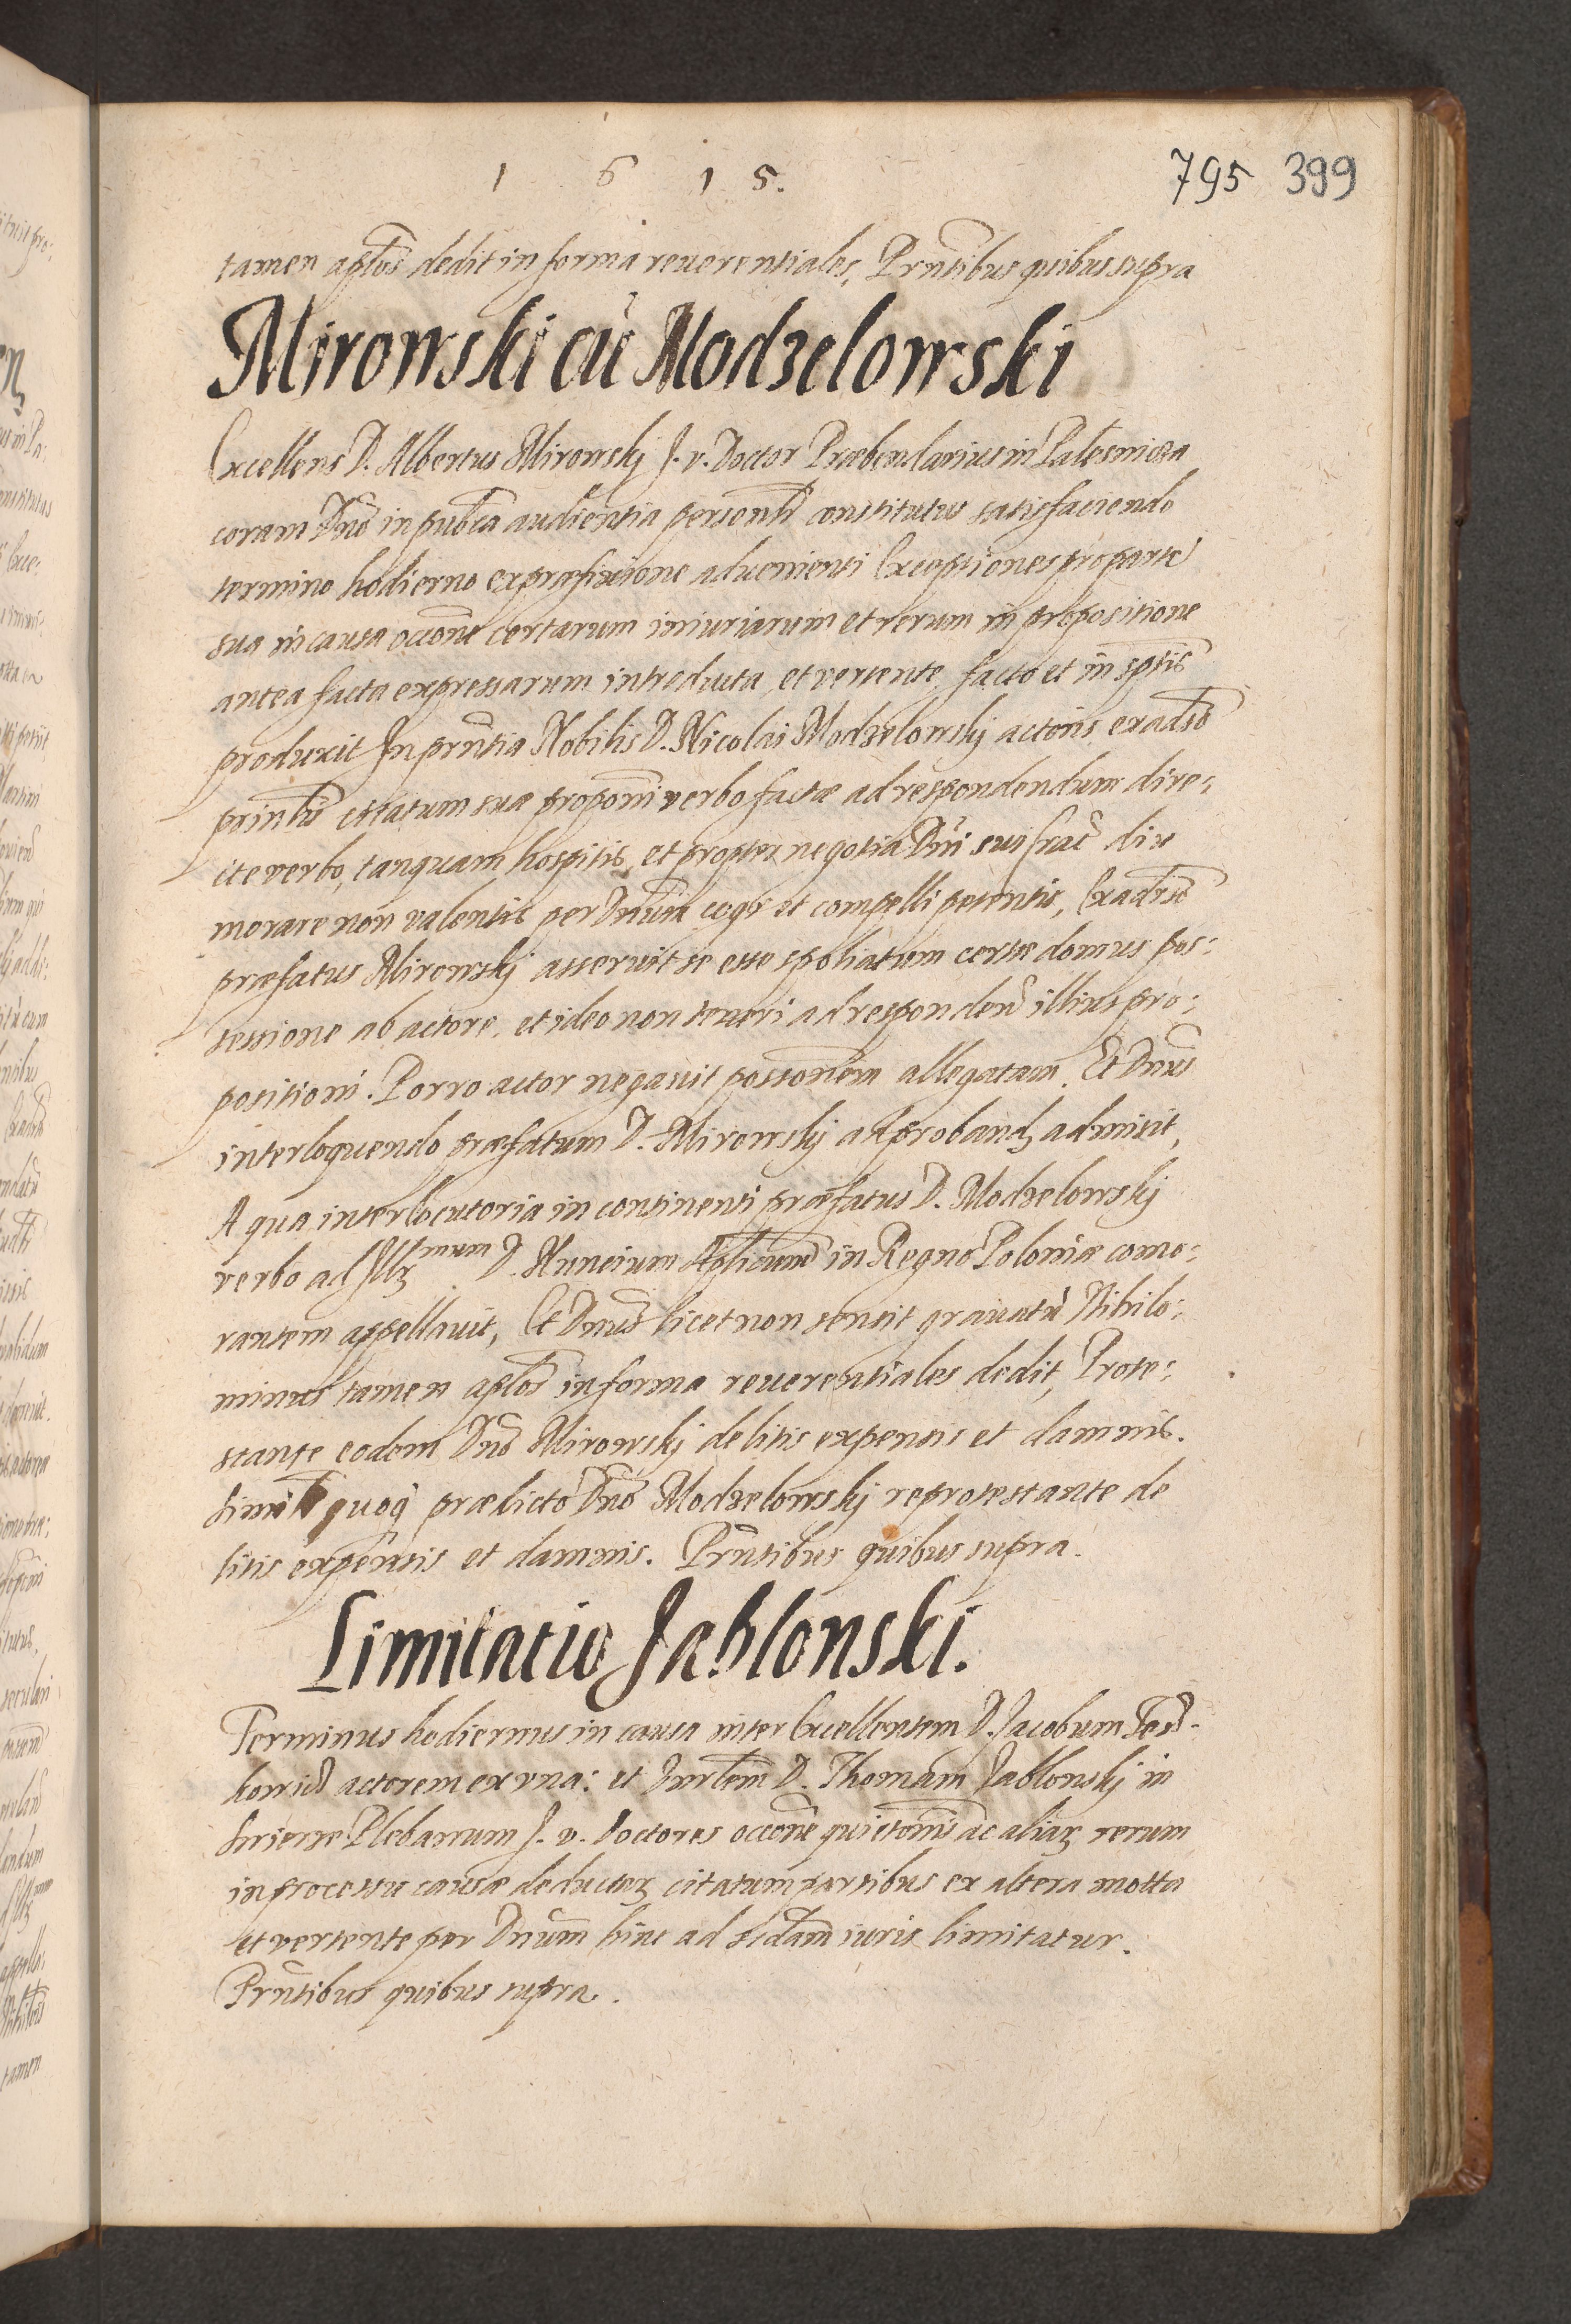 1 6 1 5.
795 399
tamen aplos dedit in forma reuerentiales, Prntibus quibus supra
Mirowski cū Modzelowski
Excellens D. Albertus Mirowskj J. v. Doctor Præbendarius in
coram Dno in publca audientia personlr constitutus satisfaciendo
termino hodierno ex præfixione aduenienti Exceptiones pro parte
sua in causa occone certarum iniuriarum et rerum in propositione
antea facta expressarum introducta, et vertente, facto et in sptis
produxit In prntia Nobilis D. Nicolai Modzelowskj actoris exadso
prinlr citatum suæ proponi verbo factæ ad respondendum dire:
cte verbo, tanquam hospitis, et propter negotia Dni sui hac diu
morare non valentis per Dnum cogi et compelli petentis, Exadrso
præfatus Mirowskj asseruit se esse spoliatum certæ domus pos:
sessione ab actore, et ideo non teneri ad responden illius pro:
positioni. Porro actor negauit possonem allegatam. Et Dnus
interloquendo præfatum D. Mirowskj ad proband admisit,
A qua interlocutoria in continenti præfatus D. Modzelowskj
verbo ad Illmum D. Nuncium Aplicum in Regno Poloniæ como:
rantem appellauit, Et Dnus licet non sensit grauatū Nihilo:
minus tamen aplos in forma reuerentiales dedit, Prote:
stante eodem Dno Mirowskj de litis expensis et damnis.
Simil quoq prædicto Dno Modzelowskj reprotestante de
litis expensis et damnis. Prntibus quibus supra.
Limitatio Jablonski.
Terminus hodiernus in causa inter Excellentem D. Jacobum
actorem ex vna: et D. Thomam Jablonskj in
Plebanum J. v. Doctores occone quietonis ac aliarz rerum
in processu causæ deductarz citatum partibus ex altera motta
et vertente per Dnum hinc ad secdam iuris limitatur.
Prntibus quibus supra.